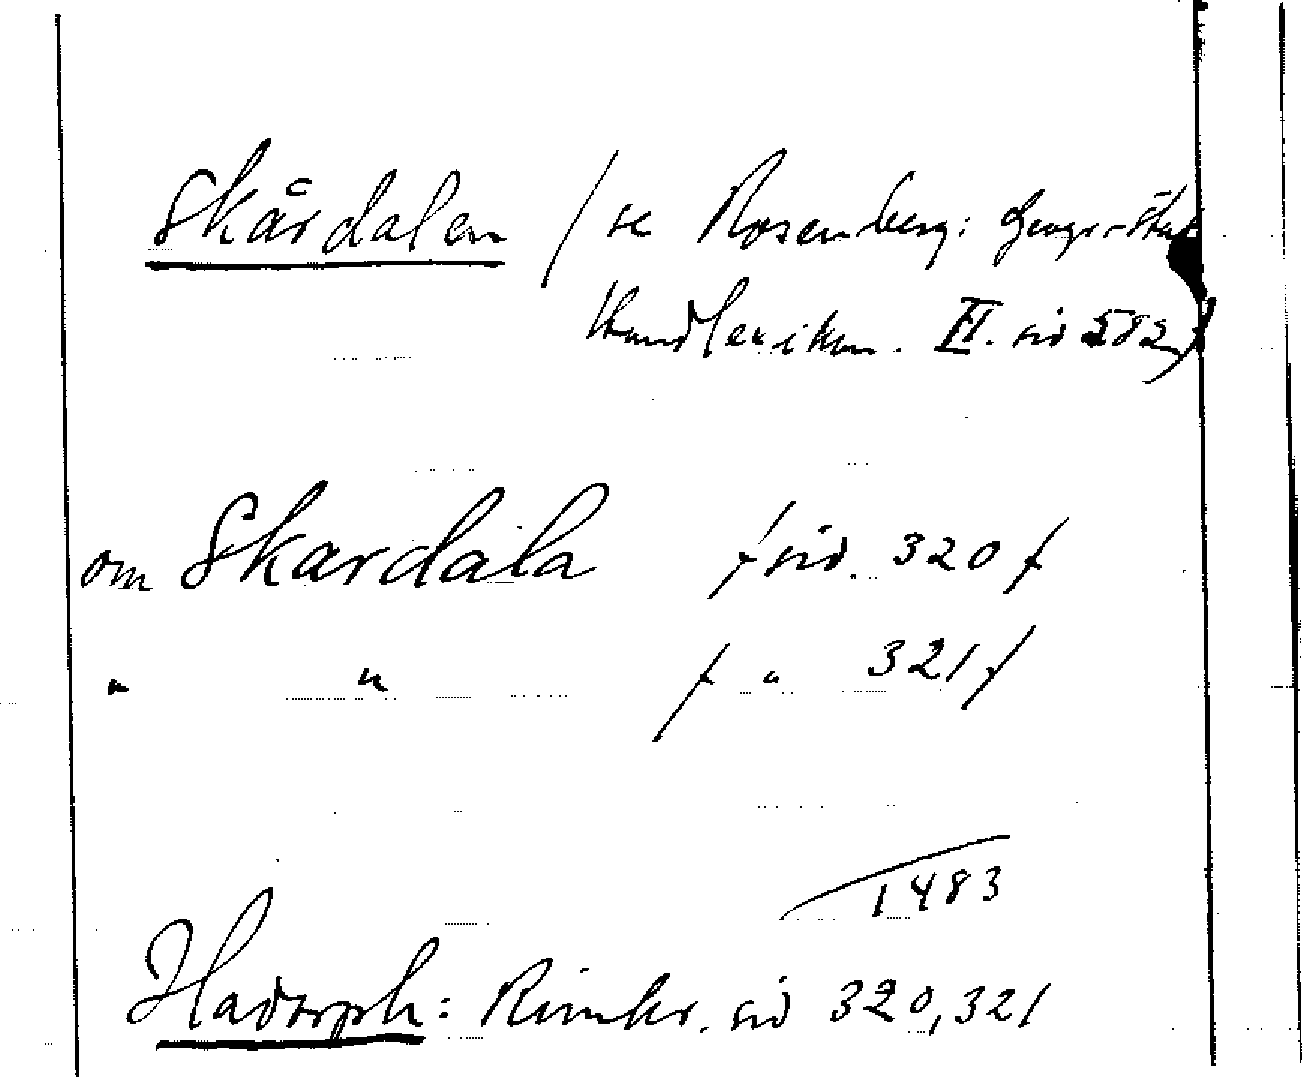 Skårdalen / se Rosenberg: Geogr-Stat
Handlexikon. II. sid 582/
om Skardala / sid. 320 /
" " / " 321 /
1483
Hadorph: Rimkr. sid 320, 321